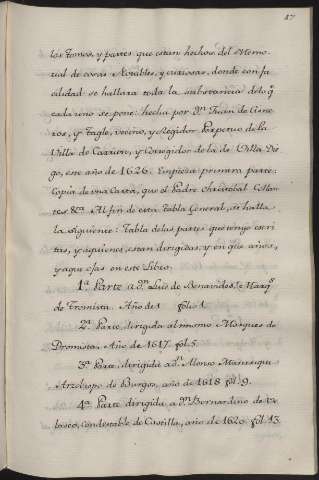 17
los tomos, y partes que estan hechos del Memo-
rial de cosas Notables, y curiosas, donde con fa-
cilidad se hallara toda la substancia de lo q.
cada uno se pone: hecha por Dn. Juan de Cisne-
ros, y Tagle, vecino, y Regidor Perpetuo de la
Villa de Carrion, y Corregidor de la de Villa Die-
go, este año de 1626. Empieza primera parte:
Copia de una Carta, que el Padre Christobal
&ra. Al fin de esta Tabla General, se halla
la siguiente: Tabla de las partes que tengo escri-
tas, y a quienes estan dirigidas, y en que años,
y a que ojas en este Libro.
1a. Parte a Dn. Luis de Benavides, Marqs.
de Fromista. Año de 1 fol. 1.
2a. Parte, dirigida al mismo Marques de
Fromista. Año de 1617. fol. 5.
3a. Parte, dirigida a Dn. Alonso Manrique
Arzobispo de Burgos, año de 1618. fol. 9.
4a. Parte dirigida a Dn. Bernardino de Ve-
lasco, condestable de Castilla, año de 1620. fol. 13.